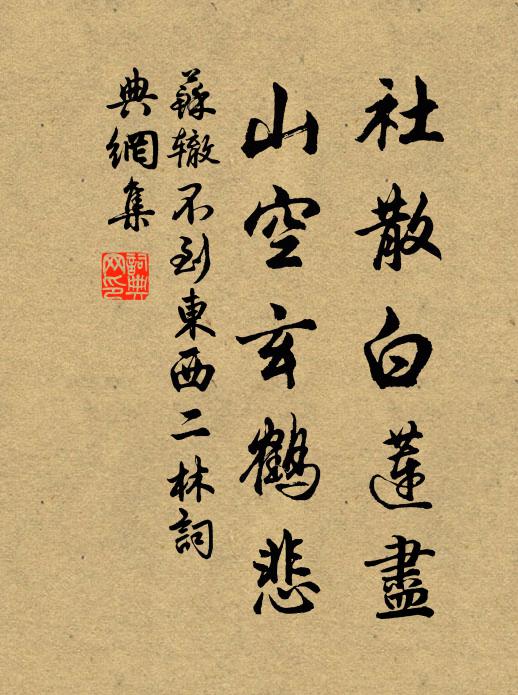 社散白蓮盡
山空玄鶴悲
蘇辙不到東西二林詞
典網集
詞典
网印